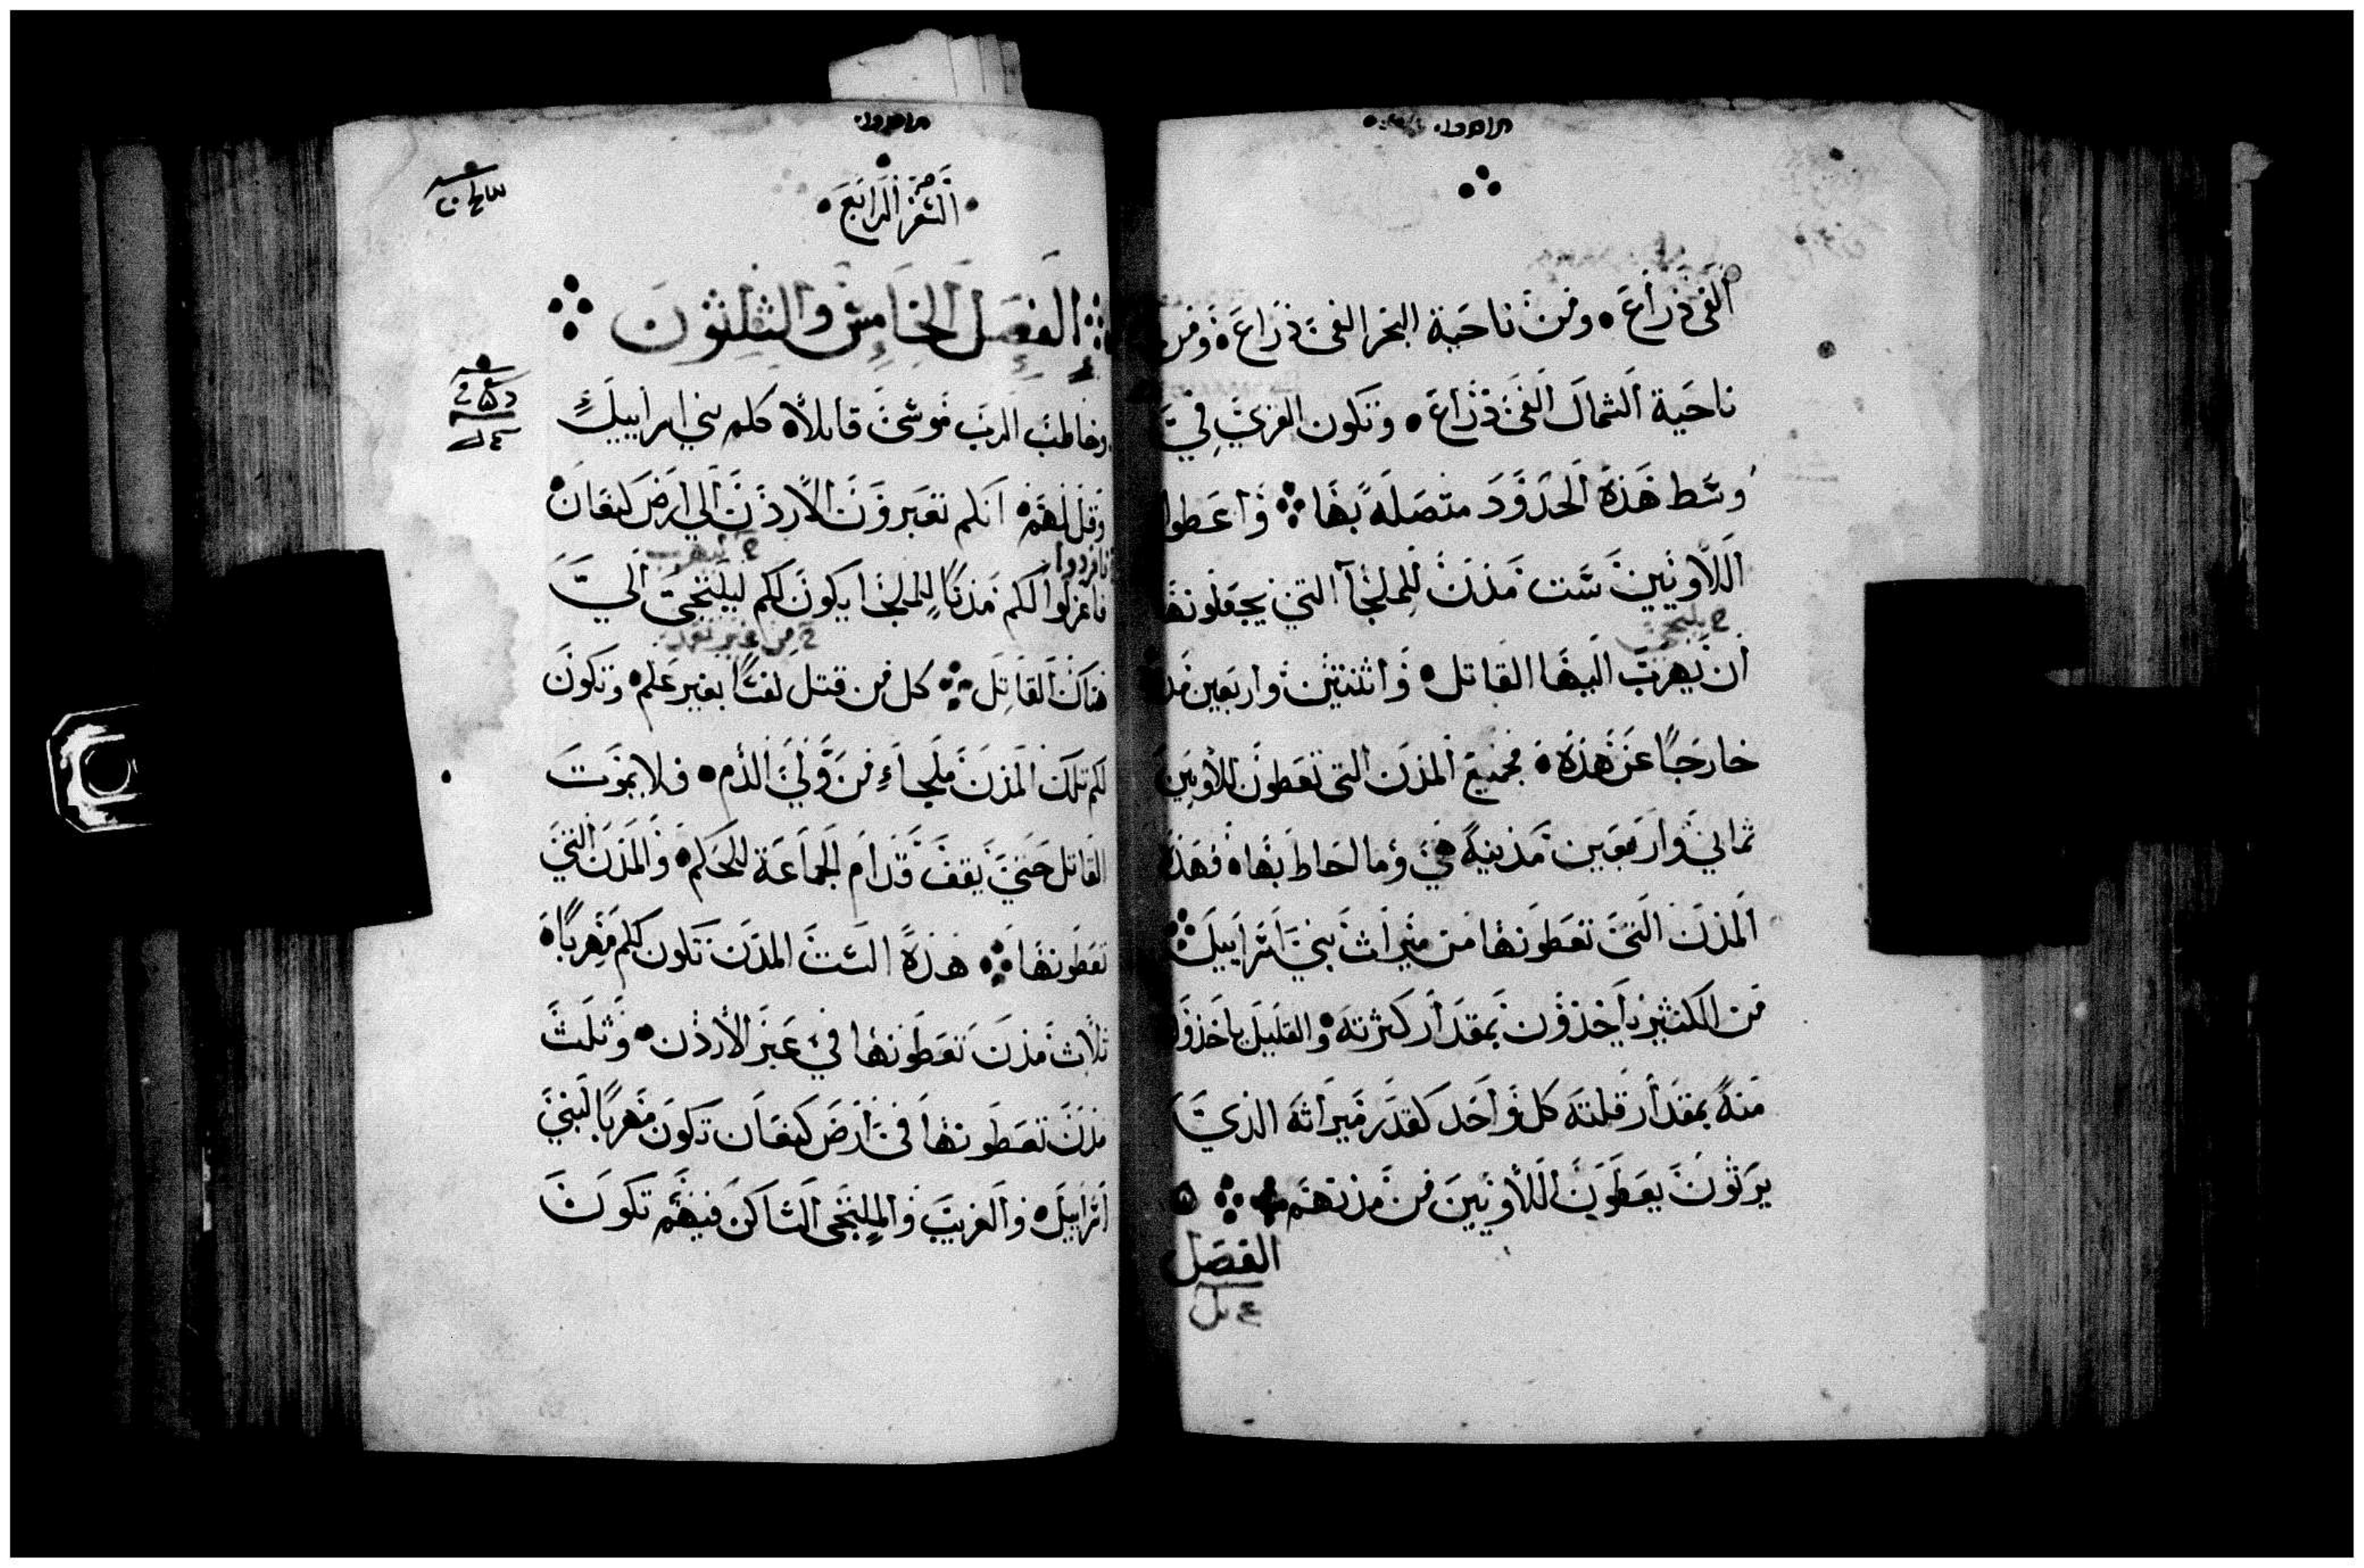 الفى ذراع • ومن ناحية البحر الفى ذراع • ومن
ناحية الشمال الفى ذراع • وتكون القرى في
وسط هذة الحدود متصلة بها ⁘ واعطوا
اللاويين ست مدن للملجآ التي يجعلونها
ح يلتجي
ان يهرب اليها القاتل • واثنتين واربعين
خارجًا عن هذة • فجميع المدن التى تعطون للاويين
ثماني واربعين مدينة هي وما احاط بها • فهذة
المدن التى تعطونها من ميراث بني اسراييل ⁘
من الكثير ياخذون بمقدار كثرته • والقليل ياخذوا
منه بمقدار قلته كل واحد كقدر ميراثه الذي
يرثون يعطون للاويين من مدنهم ⁘
الفصل
السفر الرابع
⁘ الفصل الخامس والثلثون ⁘
وخاطب الرب موسى قايلاً • كلم بني اسراييل
وقل لهم • انكم تعبرون الاردن الي ارض كنعان •
فافردوا
فاعزلوا لكم مدنًا للملجا يكون لكم ليلتجى الي
ح من غير تعمد
هناك القاتل ⁘ كل من قتل نفسًا بغير علم • وتكون
لكم تلك المدن ملجاء من ولي الدم • فلا يموت
القاتل حتي يقف قدام الجماعة للحكم • والمدن التي
تعطونها ⁘ هذة الست المدن تكون لكم مهربًا •
ثلاث مدن تعطونها في عبر الاردن • وثلث
مدن تعطونها في ارض كنعان تكون مهربًا لبني
اسراييل • والغريب والملتجى الساكن فيهم تكون